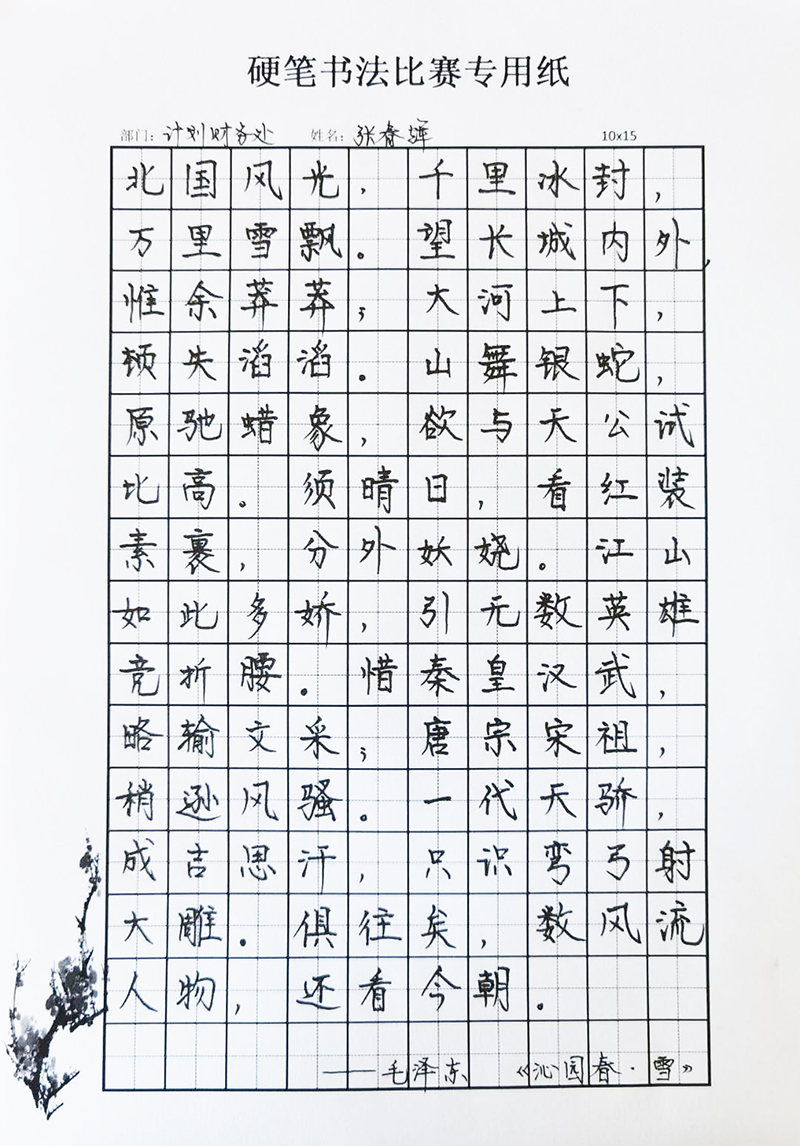 硬笔书法比赛专用纸
部门：计划财务处 姓名：张春辉 10x15
北国风光，千里冰封，
万里雪飘。望长城内外，
惟余莽莽；大河上下，
顿失滔滔。山舞银蛇，
原驰蜡象，欲与天公试
比高。须晴日，看红装
素裹，分外妖娆。江山
如此多娇，引无数英雄
竞折腰。惜秦皇汉武，
略输文采；唐宗宋祖，
稍逊风骚。一代天骄，
成吉思汗，只识弯弓射
大雕。俱往矣，数风流
人物，还看今朝。
——毛泽东 《沁园春·雪》